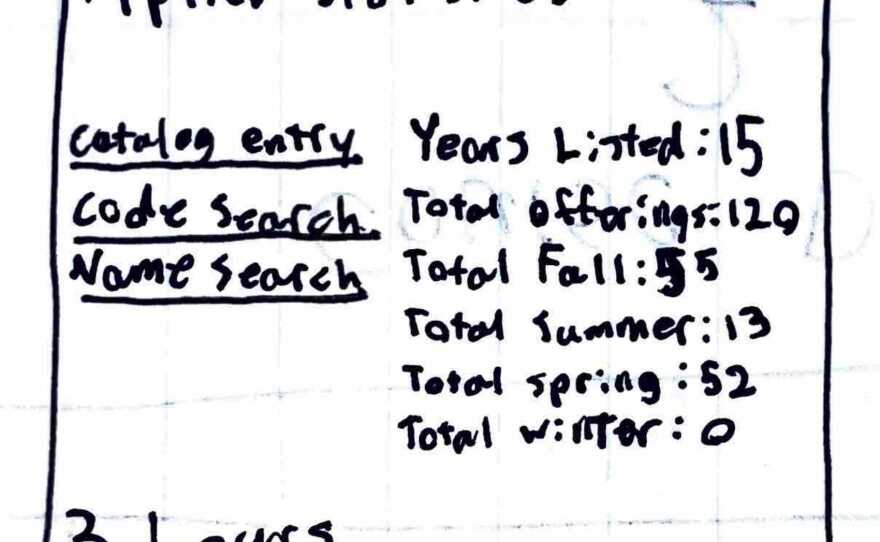 Applied Statistics
Catalog entry Years Listed: 15
Code Search Total offerings: 120
Name Search Total Fall: 55
Total Summer: 13
Total spring: 52
Total winter: 0
3 Hours